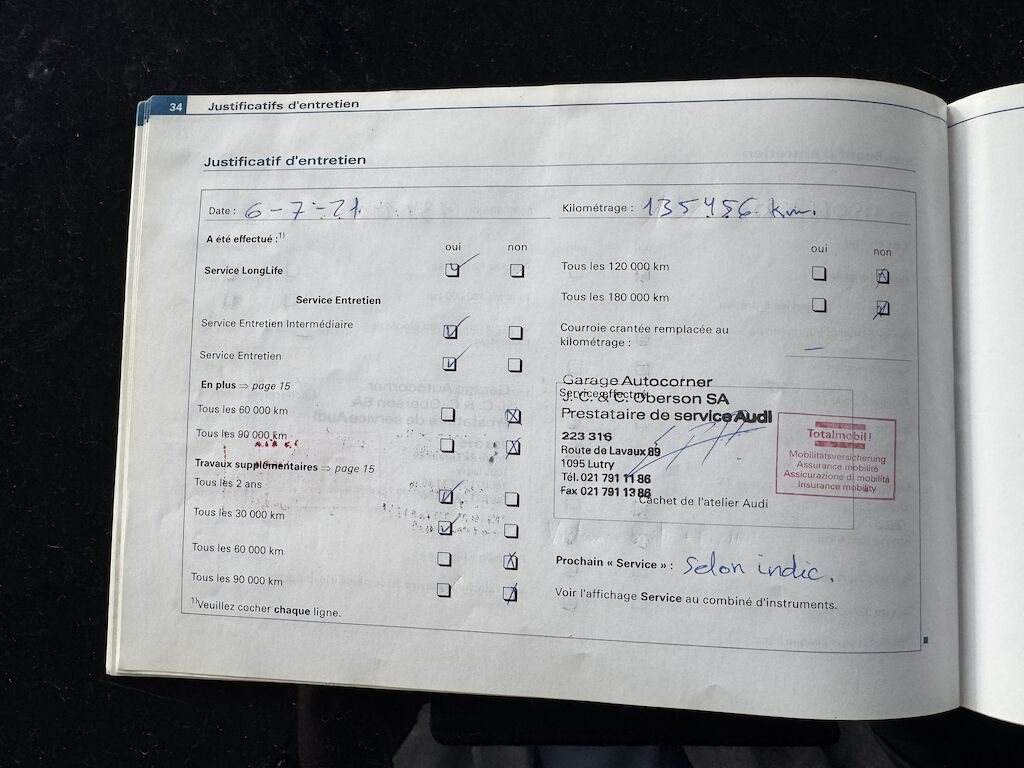 34 Justificatifs d'entretien
Justificatif d'entretien
Date : 6-7-21.
Kilométrage : 135456 km.
A été effectué :1)
oui non
Service LongLife
Service Entretien
Service Entretien Intermédiaire
Service Entretien
En plus ⇒ page 15
Tous les 60 000 km
Tous les 90 000 km
Travaux supplémentaires ⇒ page 15
Tous les 2 ans
Tous les 30 000 km
Tous les 60 000 km
Tous les 90 000 km
1)Veuillez cocher chaque ligne.
oui non
Tous les 120 000 km
Tous les 180 000 km
Courroie crantée remplacée au
kilométrage : —
Garage Autocorner
Service effectué
J.-C. & C. Oberson SA
Prestataire de service Audi
223 316
Route de Lavaux 89
1095 Lutry
Tél. 021 791 11 86
Fax 021 791 13 86
Cachet de l'atelier Audi
Totalmobil!
Mobilitätsversicherung
Assurance mobilité
Assicurazione di mobilità
Insurance mobility
Prochain « Service » : selon indic.
Voir l'affichage Service au combiné d'instruments.